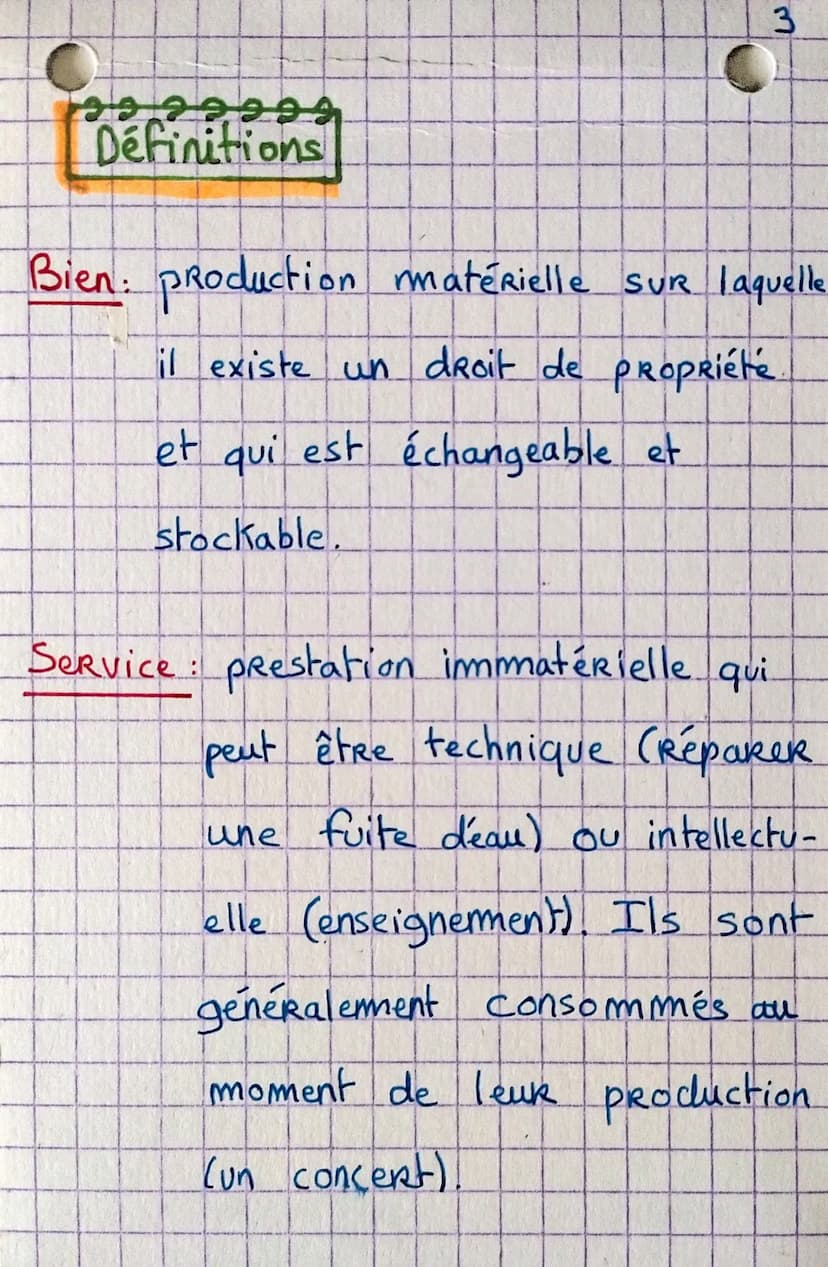 3
Définitions
Bien : production matérielle sur laquelle
il existe un droit de propriété
et qui est échangeable et
stockable.
Service : prestation immatérielle qui
peut être technique (réparer
une fuite d'eau) ou intellectu-
elle (enseignement). Ils sont
généralement consommés au
moment de leur production
(un concert).